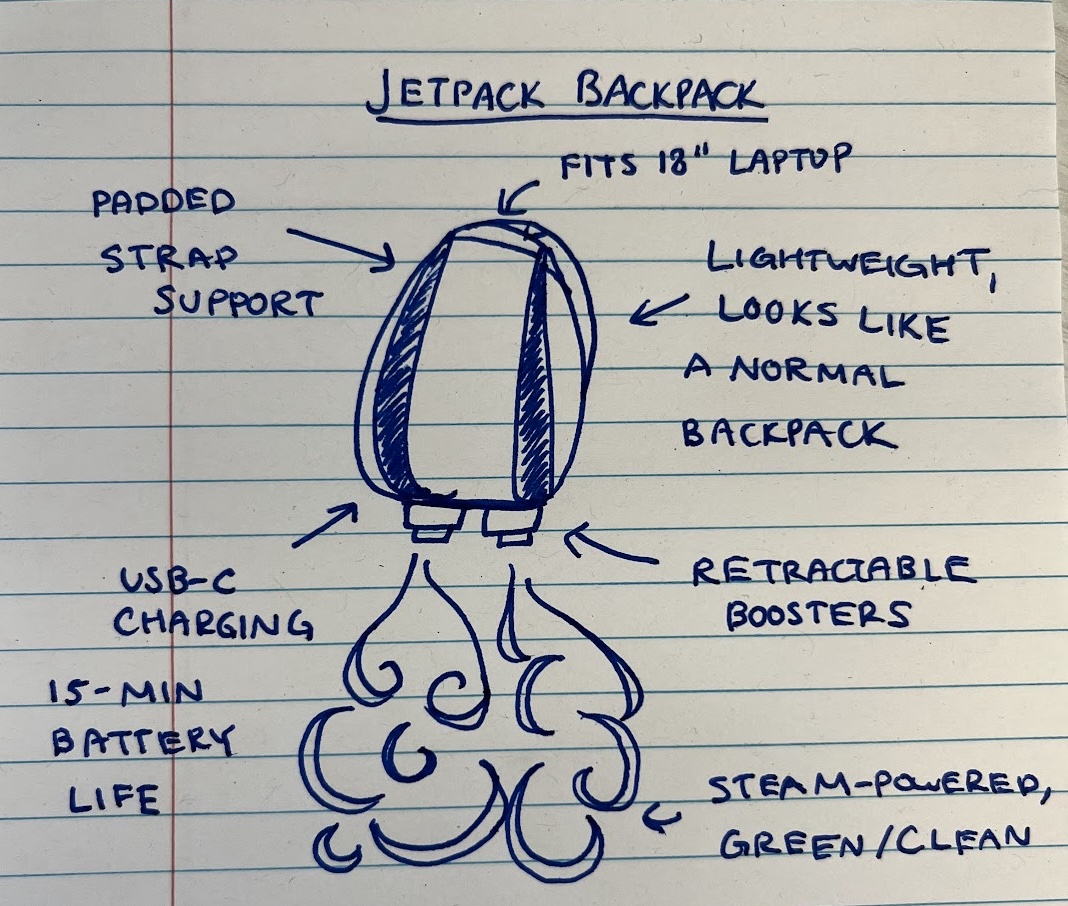 JETPACK BACKPACK
FITS 18" LAPTOP
PADDED
STRAP
SUPPORT
LIGHTWEIGHT,
LOOKS LIKE
A NORMAL
BACKPACK
USB-C
CHARGING
RETRACTABLE
BOOSTERS
15-MIN
BATTERY
LIFE
STEAM-POWERED,
GREEN/CLEAN